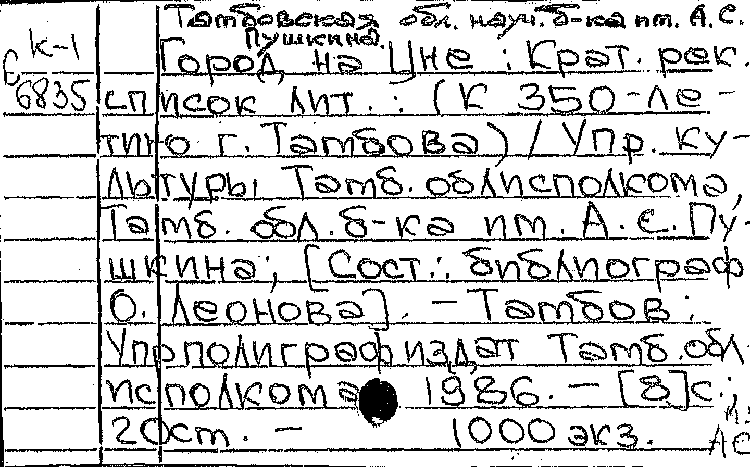 Тамбовская обл. науч. б-ка им. А.С.
Пушкина.
К-1
Город на Цне : Крат. рек.
С
6835
список лит. : (К 350-ле-
тию г. Тамбова) / Упр. ку-
льтуры Тамб. облисполкома,
Тамб. обл. б-ка им. А.С. Пу-
шкина; [Сост.: библиограф
О. Леонова]. - Тамбов :
Упрполиграфиздат Тамб. обл-
исполкома 1986. - [8]с.;
20см. - 1000 экз.